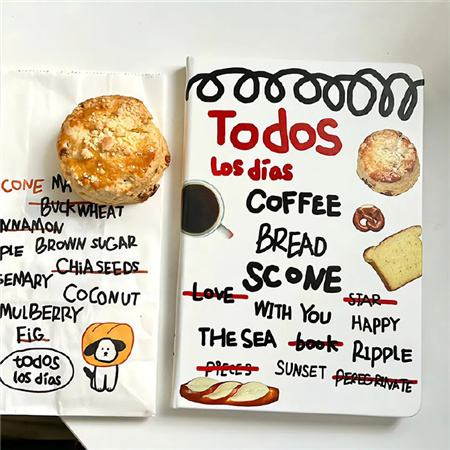 CONE
BUCKWHEAT
NNAMON
PLE BROWN SUGAR
CHIA SEEDS
SEMARY
COCONUT
MULBERRY
FIG
todos
los días
Todos
los días
COFFEE
BREAD
SCONE
LOVE
STAR
WITH YOU
HAPPY
THE SEA book
RIPPLE
PIECES
SUNSET
PEREGRINATE